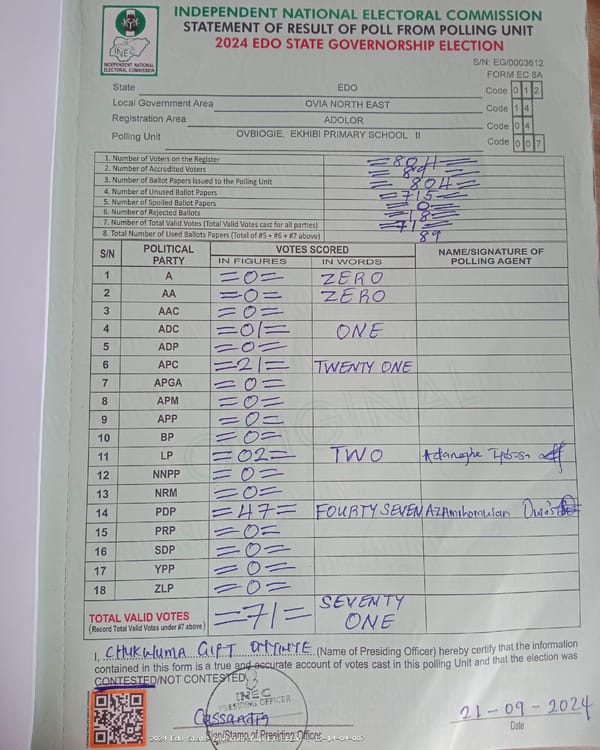 INDEPENDENT NATIONAL ELECTORAL COMMISSION
STATEMENT OF RESULT OF POLL FROM POLLING UNIT
2024 EDO STATE GOVERNORSHIP ELECTION
INEC
INDEPENDENT NATIONAL
ELECTORAL COMMISSION
S/N: EG/0003612
FORM EC 8A
State EDO Code 0 1 2
Local Government Area OVIA NORTH EAST Code 1 4
Registration Area ADOLOR Code 0 4
Polling Unit OVBIOGIE, EKHIBI PRIMARY SCHOOL II Code 0 0 7
1. Number of Voters on the Register =804=
2. Number of Accredited Voters =89=
3. Number of Ballot Papers Issued to the Polling Unit =804=
4. Number of Unused Ballot Papers =715=
5. Number of Spoiled Ballot Papers =0=
6. Number of Rejected Ballots =18=
7. Number of Total Valid Votes (Total Valid Votes cast for all parties) =71=
8. Total Number of Used Ballots Papers (Total of #5 + #6 + #7 above) 89
S/N POLITICAL PARTY VOTES SCORED NAME/SIGNATURE OF POLLING AGENT
IN FIGURES IN WORDS
1 A =0= ZERO
2 AA =0= ZERO
3 AAC =0=
4 ADC =01= ONE
5 ADP =0=
6 APC =21= TWENTY ONE
7 APGA =0=
8 APM =0=
9 APP =0=
10 BP =0=
11 LP =02= TWO
12 NNPP =0=
13 NRM =0=
14 PDP =47= FOURTY SEVEN
15 PRP =0=
16 SDP =0=
17 YPP =0=
18 ZLP =0=
TOTAL VALID VOTES =71= SEVENTY ONE
(Record Total Valid Votes under #7 above)
I, CHUKWUMA GIFT (Name of Presiding Officer) hereby certify that the information
contained in this form is a true and accurate account of votes cast in this polling Unit and that the election was
CONTESTED/NOT CONTESTED.
INEC
PRESIDING OFFICER
Cassandra
Sign/Stamp of Presiding Officer
21-09-2024
Date
ORIGINAL